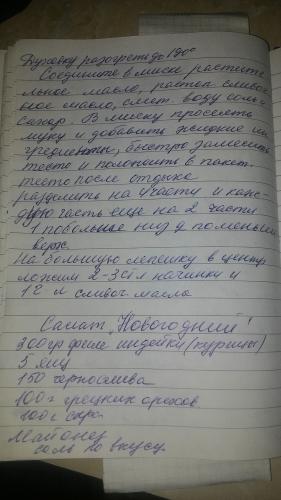 Духовку разогреть до 190°
Соедините в миски растите
льное масло, растоп. сливоч
ное масло, смет. воду соль и
сахар. В миску просеять
муку и добавить жидкие ин
гредиенты, быстро замесить
тесто и положить в пакет
тесто после отдыха
разделить на 4 части и каж-
дую часть еще на 2 части
1 побольше низ д поменьше
верх.
На большую лепешку в центр
ложим 2-3 ст л начинки и
1 л сливоч. масла
Салат "Новогодний"
300гр филе индейки (курицы)
5 яиц
150 чернослива
100 г грецких орехов
100 г сыра
Майонез
соль по вкусу